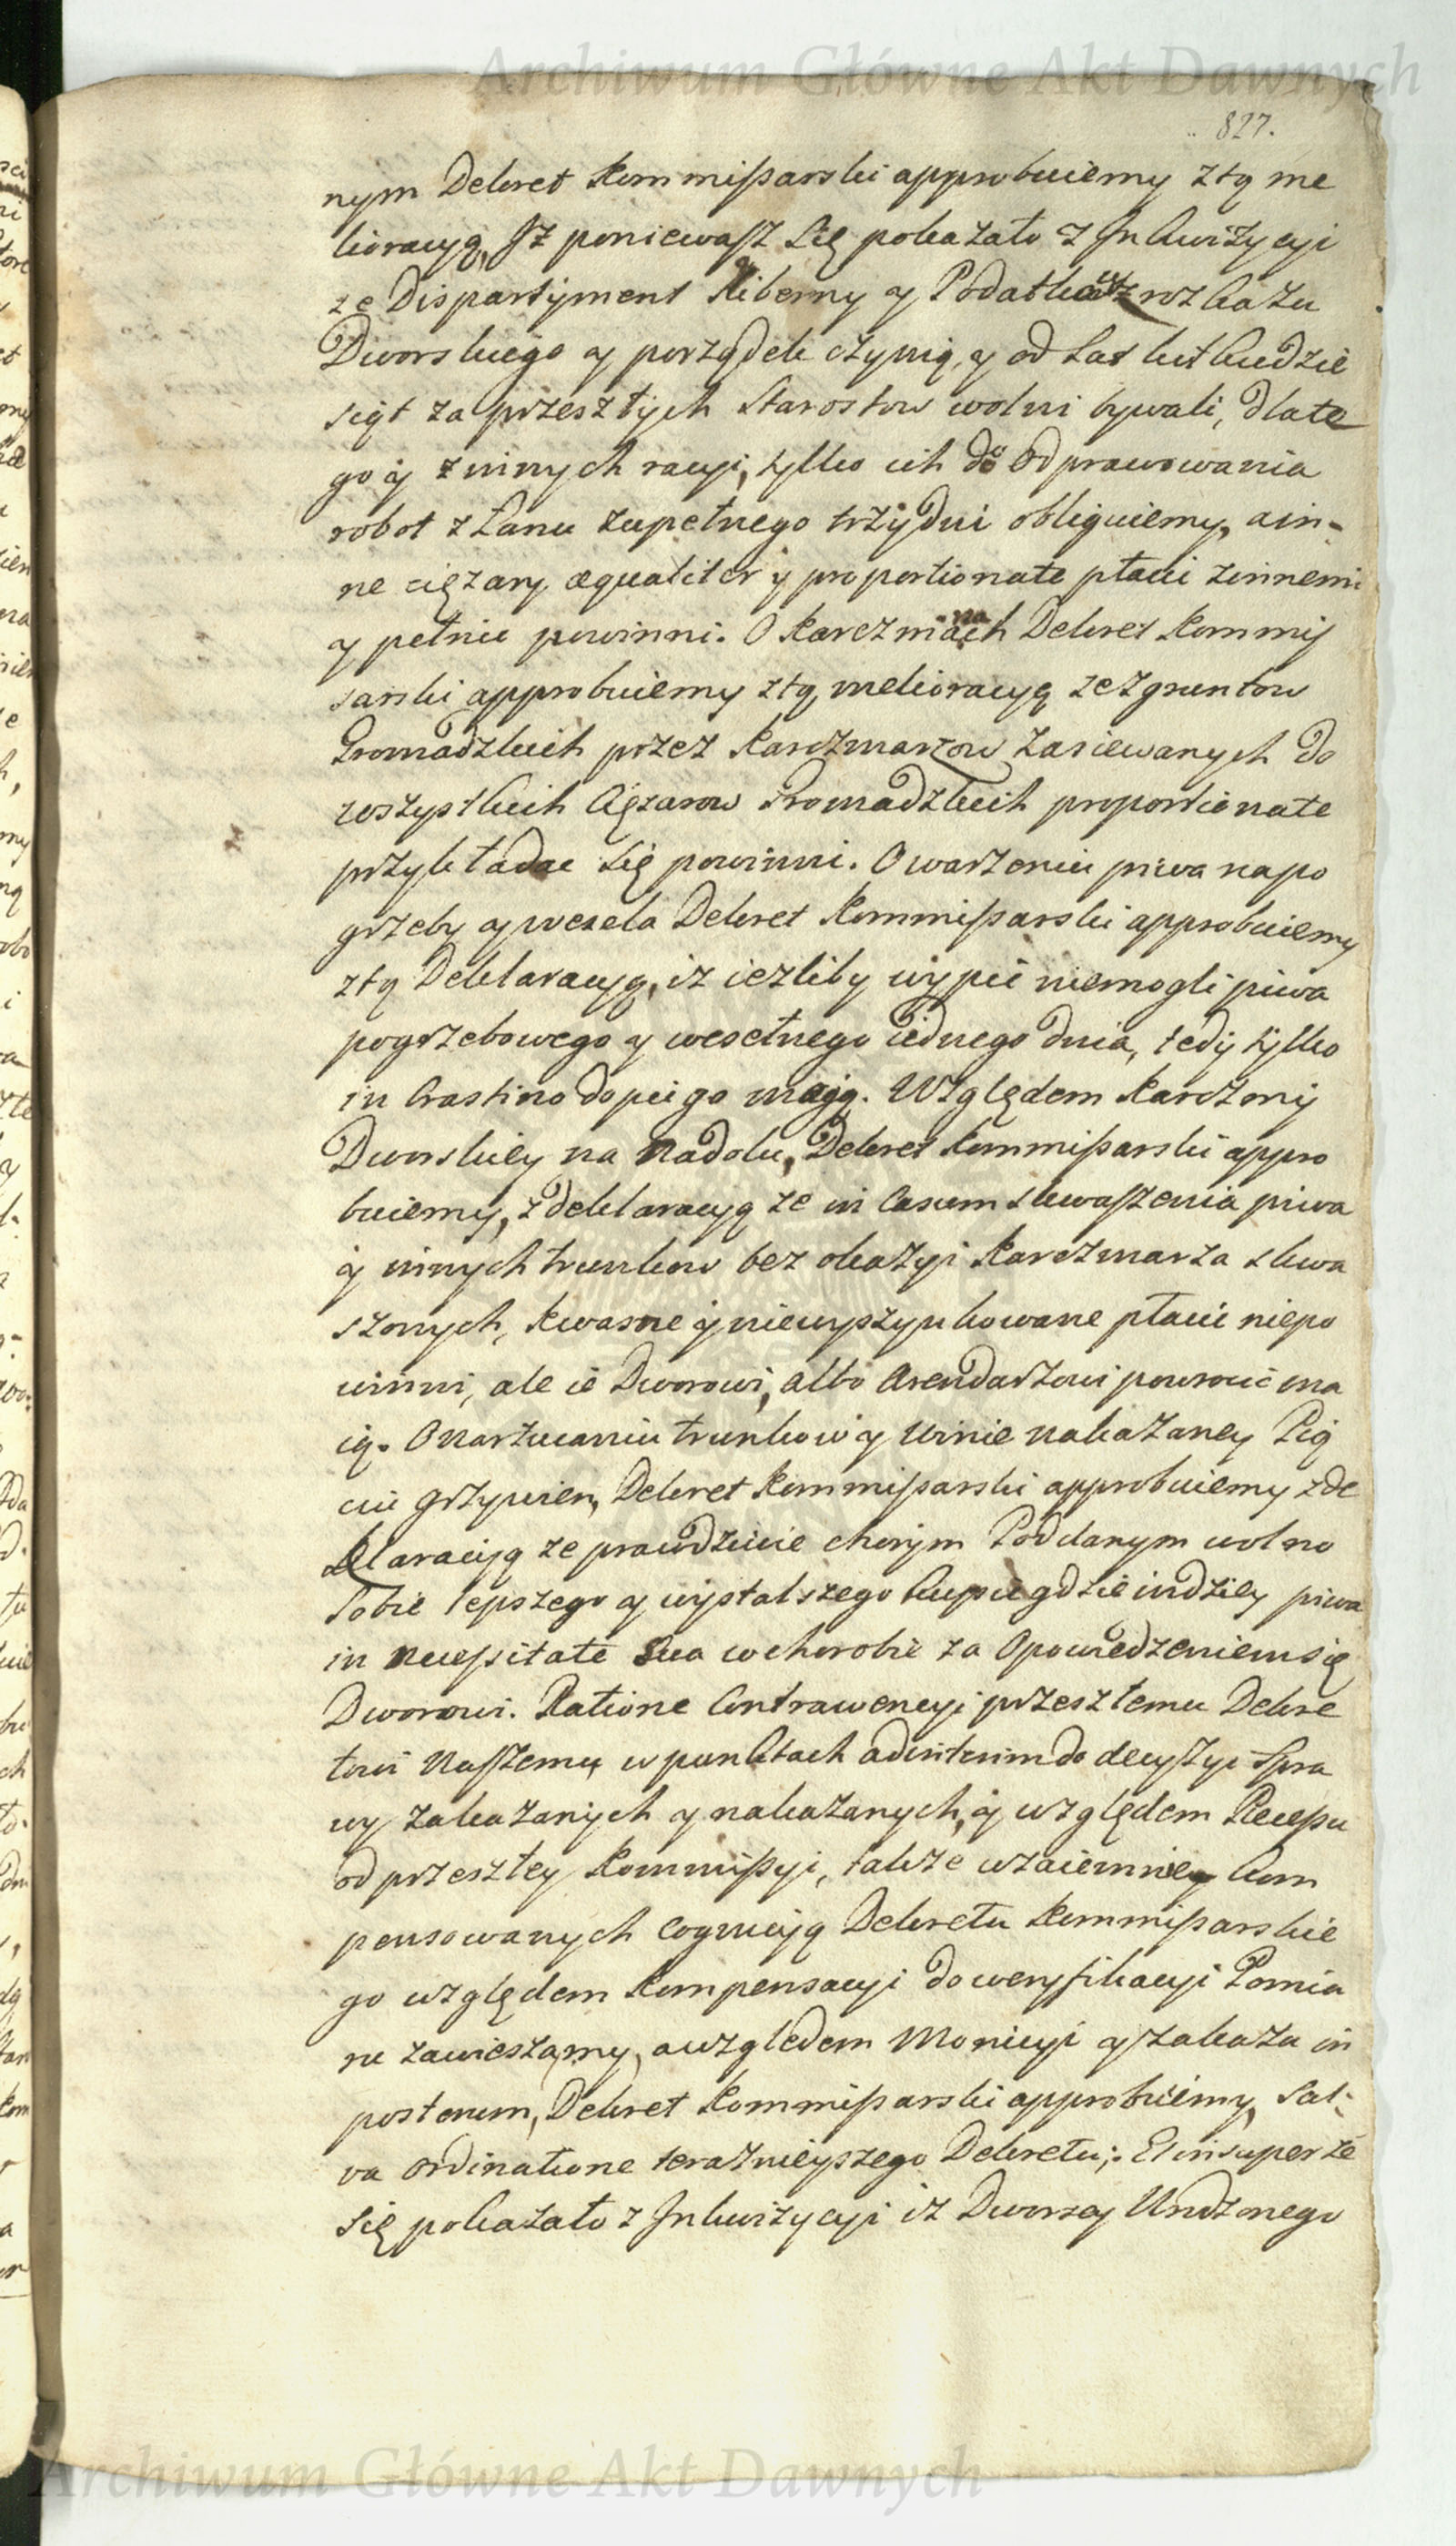 Archiwum Główne Akt Dawnych
827.
nym Dekret Kommißarski approbuiemy z tą me
lioracyą, Iż poniewasz Się pokazało z Inkwizycyi
że Dispartyment Hiberny y Podatków z rozkazu
Dworskiego y porządek czynią, y od Lat kilkudzie
siąt za przeszłych Starostow wolni bywali, dlate
go y z innych racyi, tylko ich do odprawowania
robot z Łanu zupełnego trzy dni obliguiemy, a in-
ne ciężary æqualiter y proportionate płacić z innemi
y pełnić powinni. O Karczmach Dekret Kommis
sarski approbuiemy z tą melioracyą że z gruntow
Gromadzkich przez Karczmarzow zasiewanych do
wszystkich Ciężarow Gromadzkich proportionate
przykładac się powinni. O warzeniu piwa na po
grzeby y wesela Dekret Kommißarski approbuiemy
z tą Deklaracyą, iż ieżliby wypić niemogli piwa
pogrzebowego y weselnego iednego dnia, tedy tylko
in Crastino dopić go mają. Względem Karczmy
Dworskiey na Nadolu, Dekret Kommißarski appro
buiemy, z deklaracyą że in Casum skwaszenia piwa
y innych trunkow bez okazyi Karczmarza skwa
szonych, kwasne y niewyszynkowane płacić niepo
winni, ale ie Dworowi, albo Arendarzowi powrocić ma
ią. O Narzucaniu trunkow y Winie nakazaney Pią
ciu grzywien, Dekret Kommißarski approbuiemy z de
klaracyją że prawdziwie chorym Poddanym wolno
Sobie lepszego y wystalszego kupić gdzie indziey piwa
in Necessitate Sua w chorobie za Opowiedzeniem się
Dworowi. Ratione Contrawencyi przeszłemu Dekre
towi Naszemu w punktach ad interim do decyzyi Spra
wy zakazanych y nakazanych, y względem Recessu
od przeszłey Kommißyi, także wzaiemniey kom
pensowanych Cognicyą Dekretu Kommißarskie
go względem Kompensacyi do weryfikacyi Pomia
ru zawieszamy, a względem Monicyi y zakazu in
posterum, Dekret Kommißarski approbuiemy, Sal-
va ordinatione teraznieyszego Dekretu; Et insuper że
Się pokazało z Inkwizycyi iż Dworscy Urodzonego
Archiwum Główne Akt Dawnych